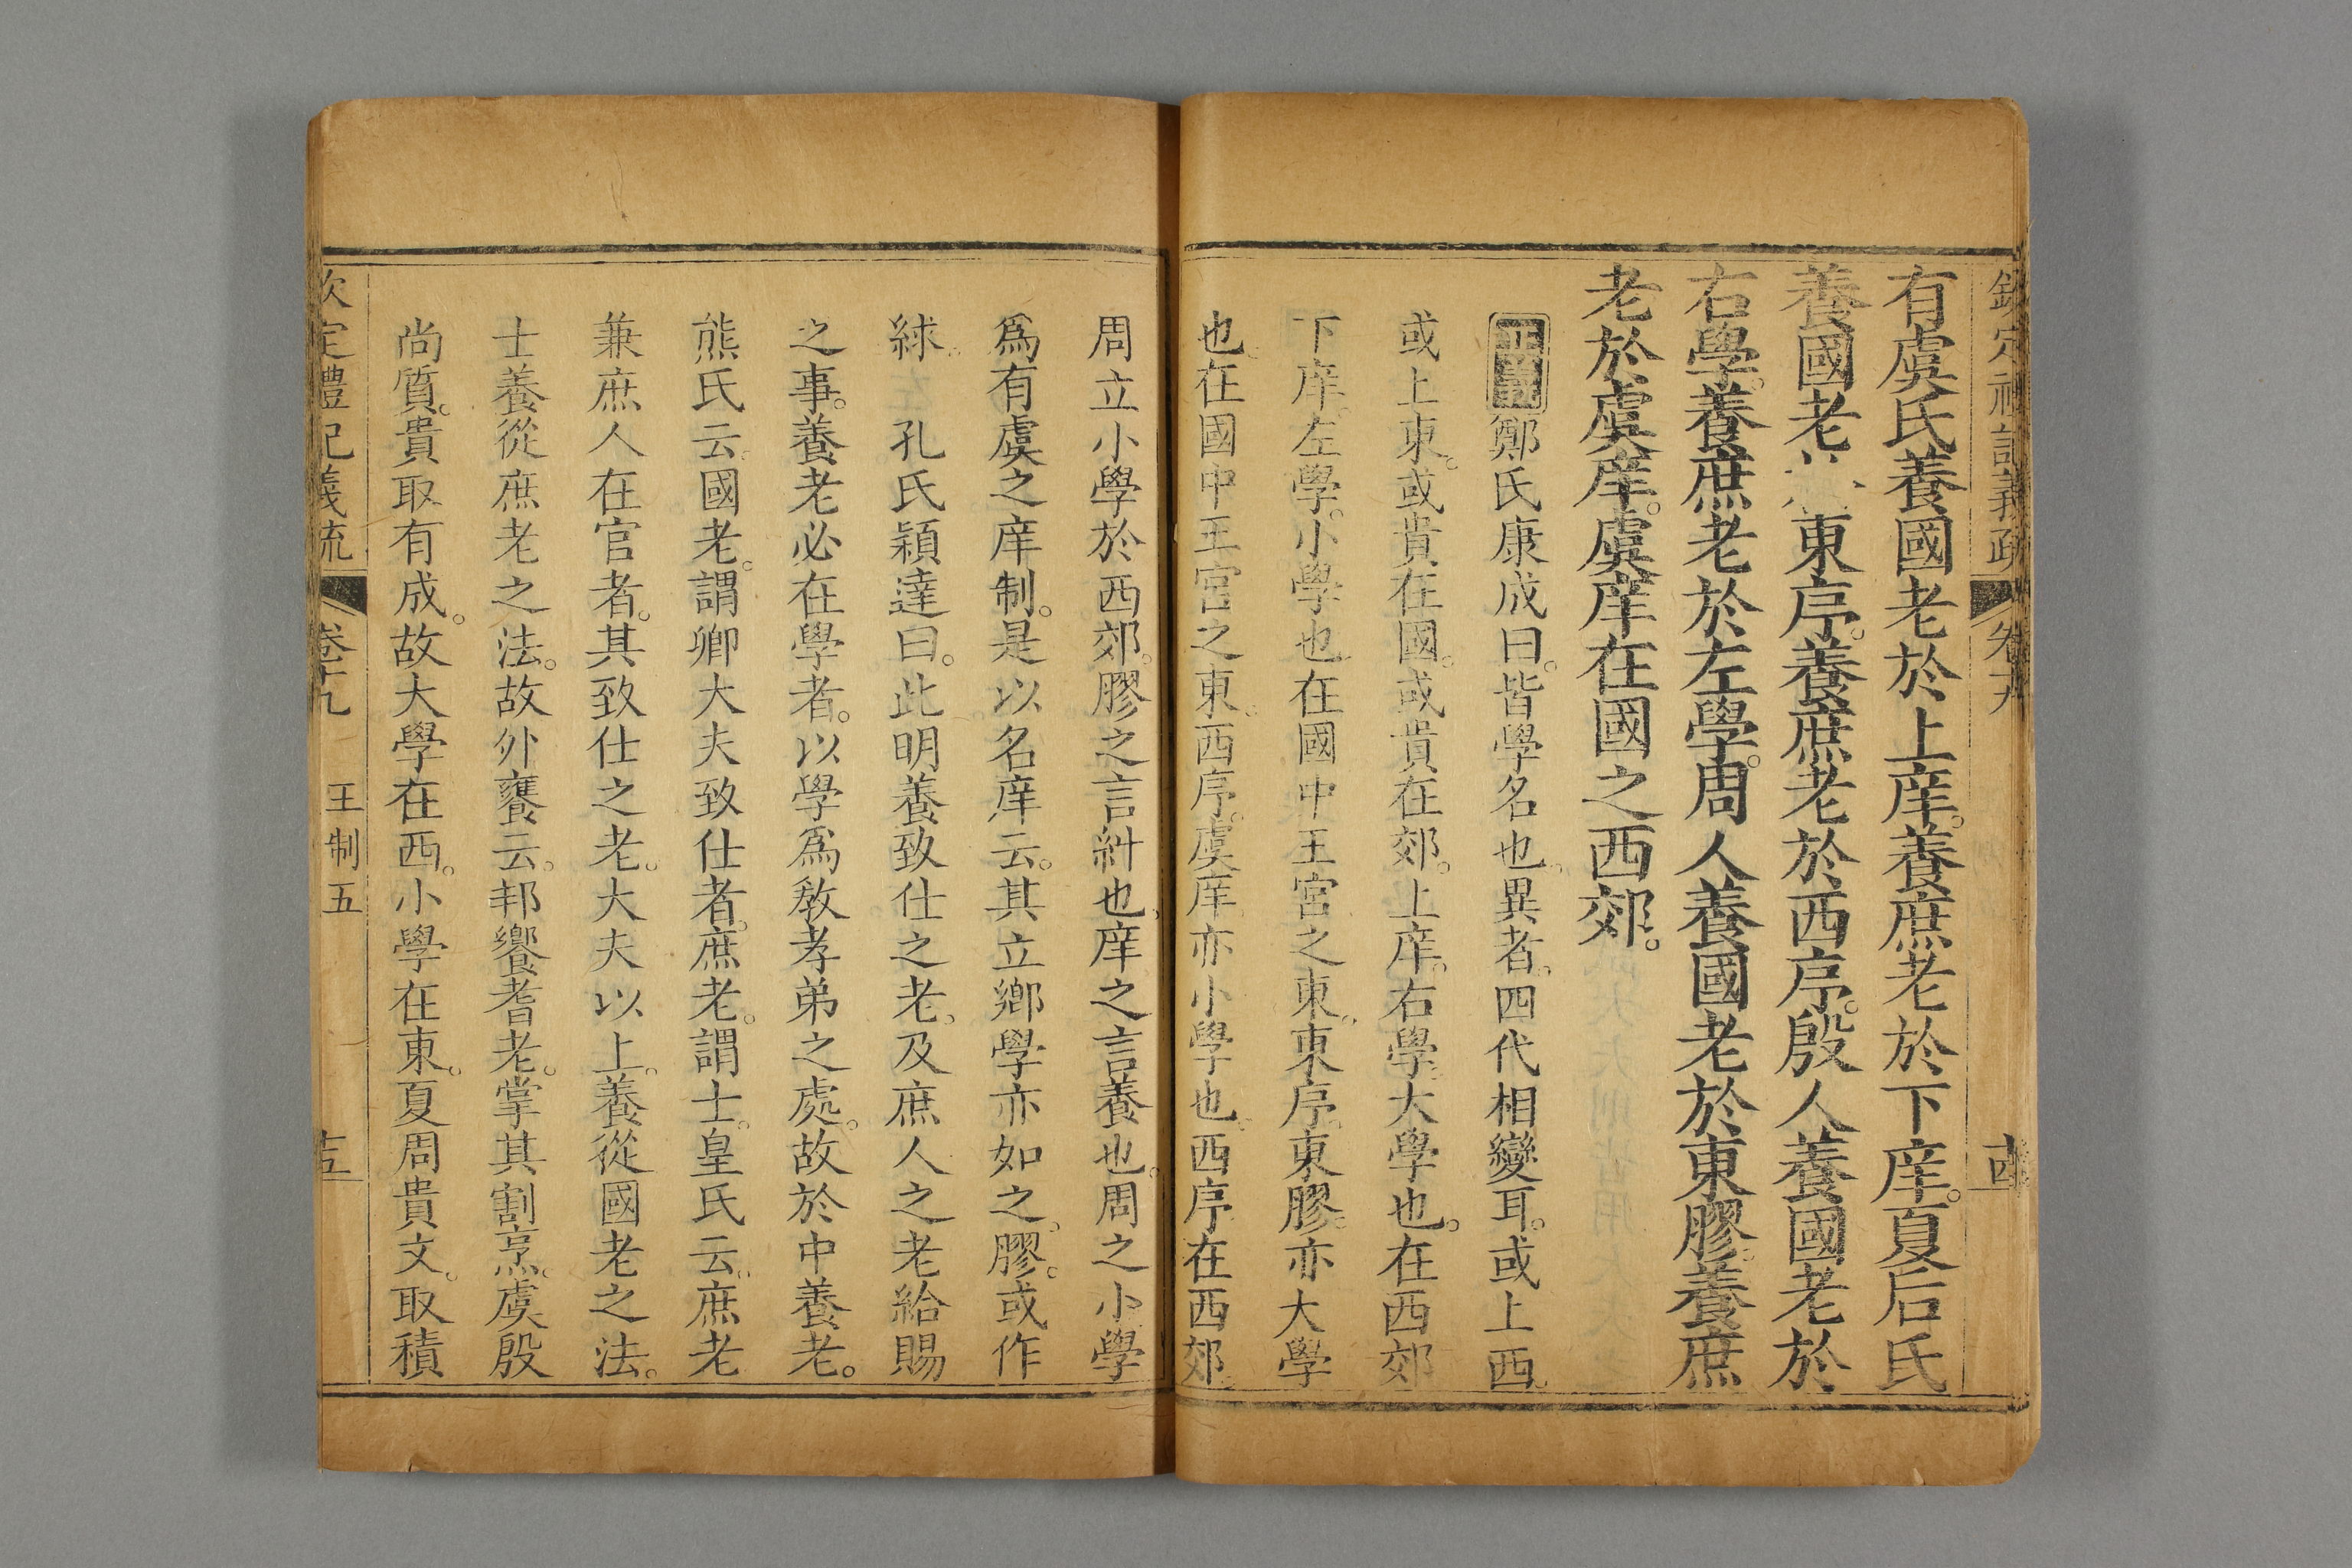 欽定禮記義疏 卷十九 十四
有虞氏養國老於上庠。養庶老於下庠。夏后氏
養國老 東序。養庶老於西序。殷人養國老於
右學。養庶老於左學。周人養國老於東膠。養庶
老於虞庠。虞庠在國之西郊。
正義 鄭氏康成曰。皆學名也。異者。四代相變耳。或上西。
或上東。或貴在國。或貴在郊。上庠。右學。大學也。在西郊
下庠。左學。小學也。在國中王宮之東。東序。東膠。亦大學
也。在國中王宮之東。西序。虞庠。亦小學也。西序在西郊。
周立小學於西郊。膠之言糾也。庠之言養也。周之小學
爲有虞之庠制。是以名庠云。其立鄉學亦如之。膠。或作
絿。 孔氏穎達曰。此明養致仕之老。及庶人之老給賜
之事。養老必在學者。以學爲教孝弟之處。故於中養老。
熊氏云。國老。謂卿大夫致仕者。庶老。謂士。皇氏云。庶老
兼庶人在官者。其致仕之老。大夫以上。養從國老之法。
士養從庶老之法。故外饔云。邦饗耆老。掌其割烹。虞殷
尚質。貴取有成。故大學在西。小學在東。夏周貴文。取積
欽定禮記義疏 卷十九 王制五 十五